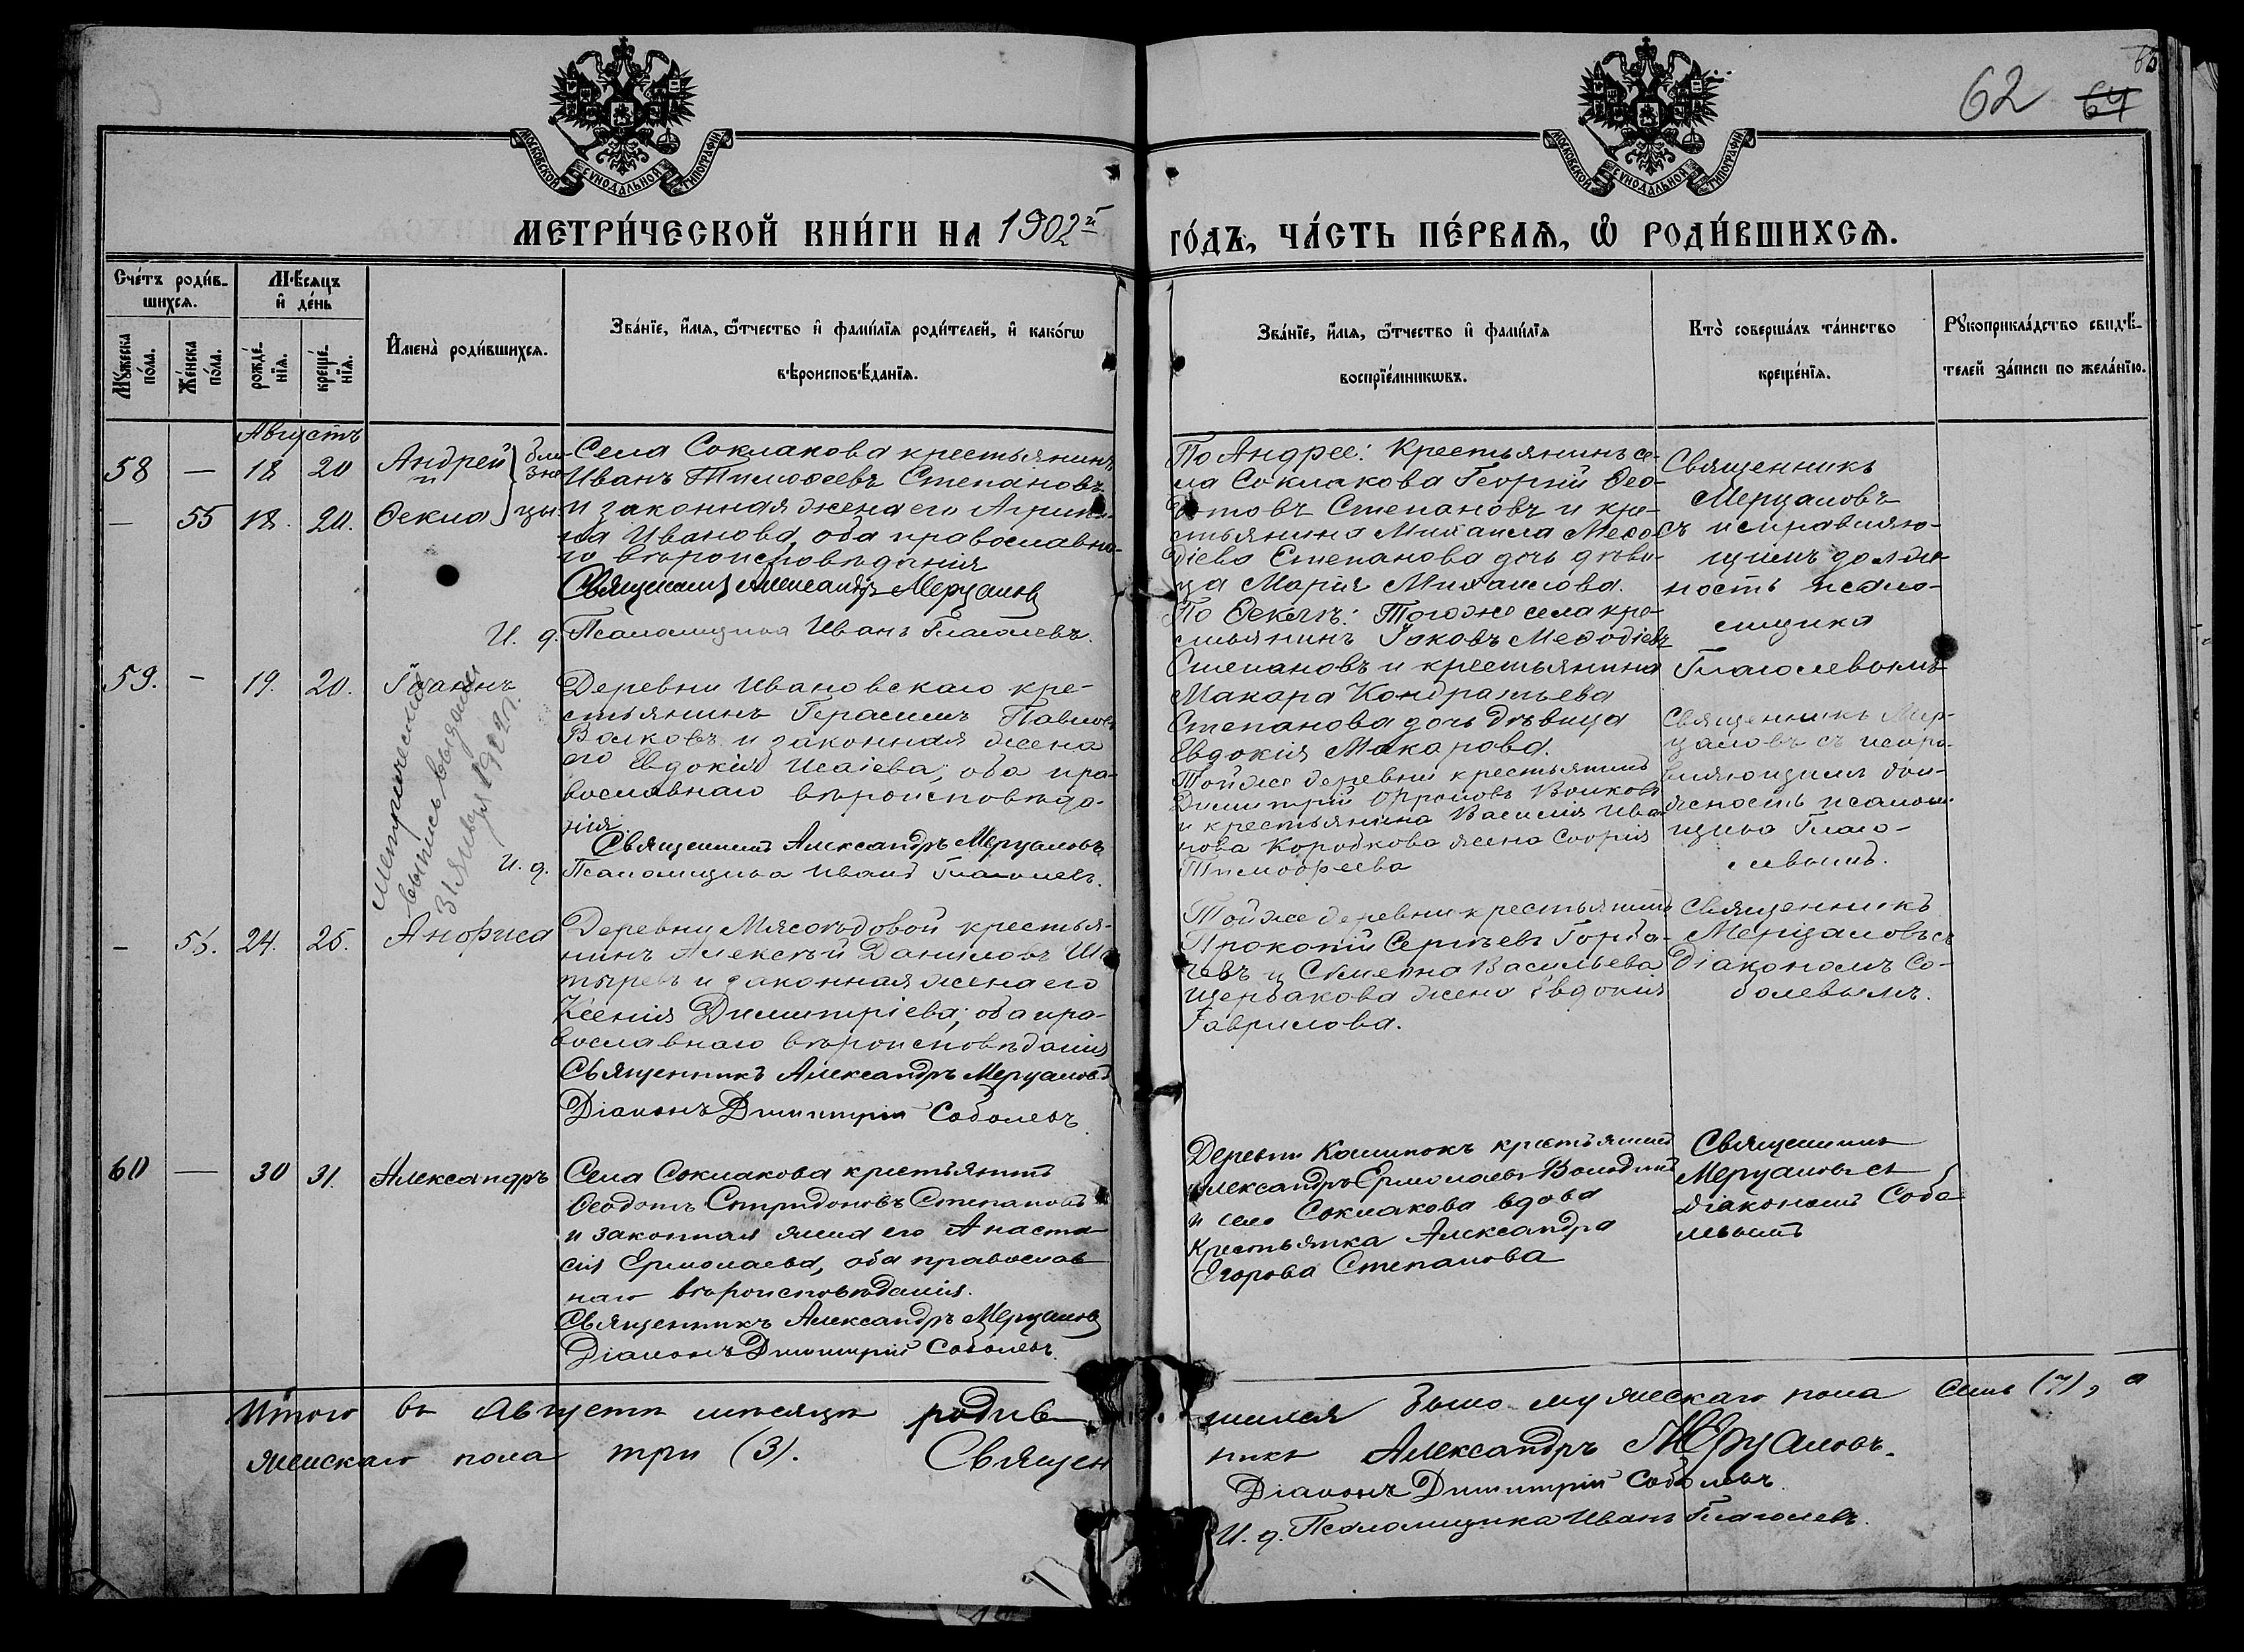 62 64
МОСКОВСКОЙ СѴНОДАЛЬНОЙ ТИПОГРАФІИ
МОСКОВСКОЙ СѴНОДАЛЬНОЙ ТИПОГРАФІИ
МЕТРИ́ЧЕСКОЙ КНИ́ГИ НА 1902й
ГО́ДЪ, ЧА́СТЬ ПЕ́РВАѦ, Ѡ҆ РОДИ́ВШИХСѦ.
Сче́тъ роди́в-
шихсѧ.
Мѣ́сѧцъ
и҆ де́нь
Мꙋ́жеска
по́ла.
Же́нска
по́ла.
рожде́-
нїѧ.
креще́-
нїѧ.
И҆мена̀ роди́вшихсѧ.
Зва́нїе, и҆́мѧ, ѻ҆́тчество и҆ фами́лїѧ роди́телей, и҆ како́гѡ
вѣроисповѣ́данїѧ.
Зва́нїе, и҆́мѧ, ѻ҆́тчество и҆ фами́лїѧ
воспрїе́мникѡвъ.
Кто̀ соверша́лъ та́инство
креще́нїѧ.
Рꙋкоприкла́дство свидѣ́-
телей за́писи по жела́нїю.
Августъ
58 — 18 20 Андрей
и
— 55 18. 20. Ѳекла
близнецы.
Села Соклакова крестьянинъ
Иванъ Тимоѳеевъ Степановъ
и законная жена его Агрипи-
на Иванова, оба православна-
го вѣроисповѣданія
Священникъ Александръ Мерцаловъ
И. д. Псаломщика Иванъ Глаголевъ.
По Андрее: Крестьянинъ се-
ла Соклакова Георгій Ѳео-
дотовъ Степановъ и кре-
стьянина Михаила Меѳо-
діева Степанова дочь дѣви-
ца Марія Михаилова.
По Ѳеклѣ: Того же села кре-
стьянинъ Іаковъ Меѳодіевъ
Степановъ и крестьянина
Макара Кондратьева
Степанова дочь дѣвица
Евдокія Макарова.
Священникъ
Мерцаловъ
съ исправляю-
щимъ долж-
ность псало-
мщика
Глаголевымъ
59. - 19. 20. Іоаннъ
Метрическая
выпись выдана
31 января 1922 г.
Деревни Ивановскаго кре-
стьянинъ Герасимъ Павловъ
Волковъ и законная жена
его Евдокія Исаіева, оба пра-
вославнаго вѣроисповѣда-
нія.
Священникъ Александръ Мерцаловъ
И. д. Псаломщика Иванъ Глаголевъ.
Тойже деревни крестьянинъ
Димитрій Волковъ
и крестьянина Василія Ива-
нова Коробкова жена Софія
Тимофеева
Священникъ Мер-
цаловъ съ испра-
вляющимъ дол-
жность псалом-
щика Глаго-
левымъ.
- 56. 24. 25. Анфиса
Деревни Мясоѣдовой крестья-
нинъ Алексѣй Даниловъ Ша-
тыревъ и законная жена его
Ксенія Димитріева, оба пра-
вославнаго вѣроисповѣданія
Священникъ Александръ Мерцаловъ
Діаконъ Димитрій Соболевъ.
Тойже деревни крестьянинъ
Прокопій Сергѣевъ Горба-
чевъ и Симеона Васильева
Щербакова жена Евдокія
Гаврилова.
Священникъ
Мерцаловъ съ
Діакономъ Со-
болевымъ.
60 — 30 31. Александръ
Села Соклакова крестьянинъ
Ѳеодотъ Спиридоновъ Степановъ
и законная жена его Анаста-
сія Ермолаева, оба православ-
наго вѣроисповѣданія.
Священникъ Александръ Мерцаловъ
Діаконъ Димитрій Соболевъ.
Деревни крестьянинъ
Александръ Ермолаевъ Володинъ
и села Соклакова вдова
крестьянка Александра
Егорова Степанова
Священникъ
Мерцаловъ съ
діакономъ Собо-
левымъ
Итого въ Августѣ мѣсяцѣ родив-
шихся было мужескаго пола семь (7), а
женскаго пола три (3). Священ-
никъ Александръ Мерцаловъ.
Діаконъ Димитрій Соболевъ.
И. д. Псаломщика Иванъ Глаголевъ.